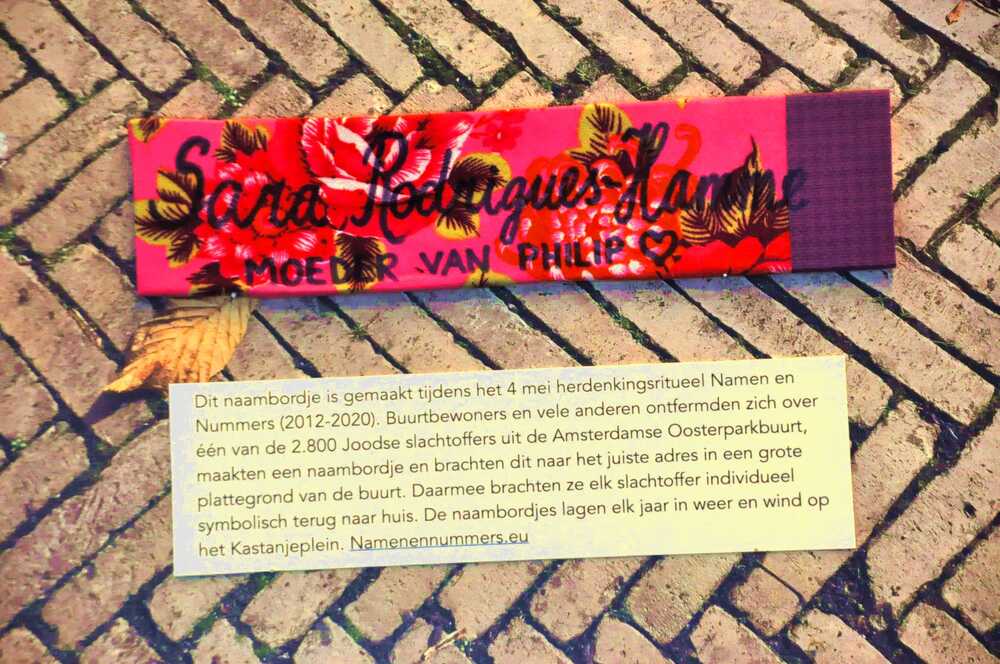 Sara Rodrigues-Hamme
MOEDER VAN PHILIP
Dit naambordje is gemaakt tijdens het 4 mei herdenkingsritueel Namen en
Nummers (2012-2020). Buurtbewoners en vele anderen ontfermden zich over
één van de 2.800 Joodse slachtoffers uit de Amsterdamse Oosterparkbuurt,
maakten een naambordje en brachten dit naar het juiste adres in een grote
plattegrond van de buurt. Daarmee brachten ze elk slachtoffer individueel
symbolisch terug naar huis. De naambordjes lagen elk jaar in weer en wind op
het Kastanjeplein. Namenennummers.eu